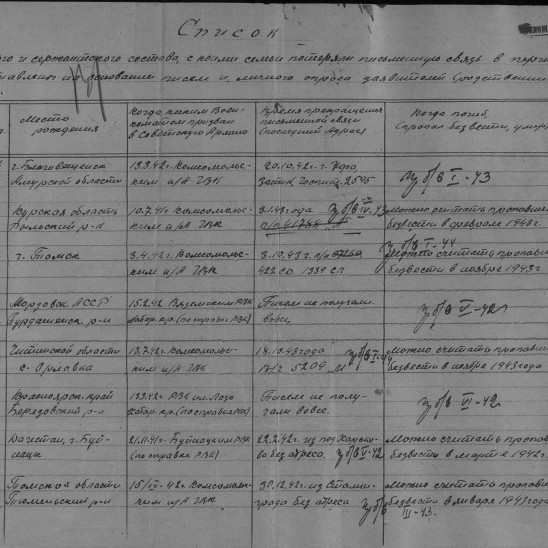 Список
го и сержантского состава, с коими семьи потеряли письменную связь в пери
тавлен на основании писем и личного опроса заявителей (родственни
Место
рождения
Когда, каким Воен-
коматом призван
в Советскую Армию
Время прекращения
письменной связи
(последний адрес)
Когда погиб,
пропал безвести, умер
г. Благовещенск
Амурской области
13.3.42г. Комсомольс-
ким п/А ГВК
20.10.42г. г.
Госпит. 2595
из б/в I-43
Курская область
р-н
10.7.41г. Комсомольс-
ким п/А ГВК
8.1.43 года
Можно считать пропавшим
безвести в феврале 1943г.
г. Томск
3.4.42г. Комсомоль-
ким п/А ГВК
3.10.43г. п/п
422 сп. 1339 сп
б/в I-44
Можно считать пропавшим
безвести в ноябре 1943г
Мордовск. АССР
р-н
15.2.42 Вяземским РВК
Хабар. кр. (по справке РВК)
Писем не получали
вовсе.
б/в V-42г
Читинской области
с. Орловка
13.7.42г. Комсомоль-
ким п/А ГВК
18.10.43 года
п/п 5209
б/в I-44
Можно считать пропавшим
безвести в ноябре 1943 года
Красноярск. край
Березовский р-н
13.3.42г. РВК им. Лазо
Хабар. кр. (по справке РВК)
Писем не полу-
чали вовсе.
б/в VI-42
Дагестан, г. Буй-
накск
21.11.41г. Буйнакским РВК
(по справке РВК)
22.2.42г. из под Харько-
ва без адреса
б/в V-42
Можно считать пропавшим
безвести в марте 1942г.
Томской области
р-н
15/III-42г. Комсомоль-
ким п/А ГВК
30.12.42г. из Сталин-
града без адреса
б/в
III-43.
Можно считать пропавшим
безвести в января 1943 года